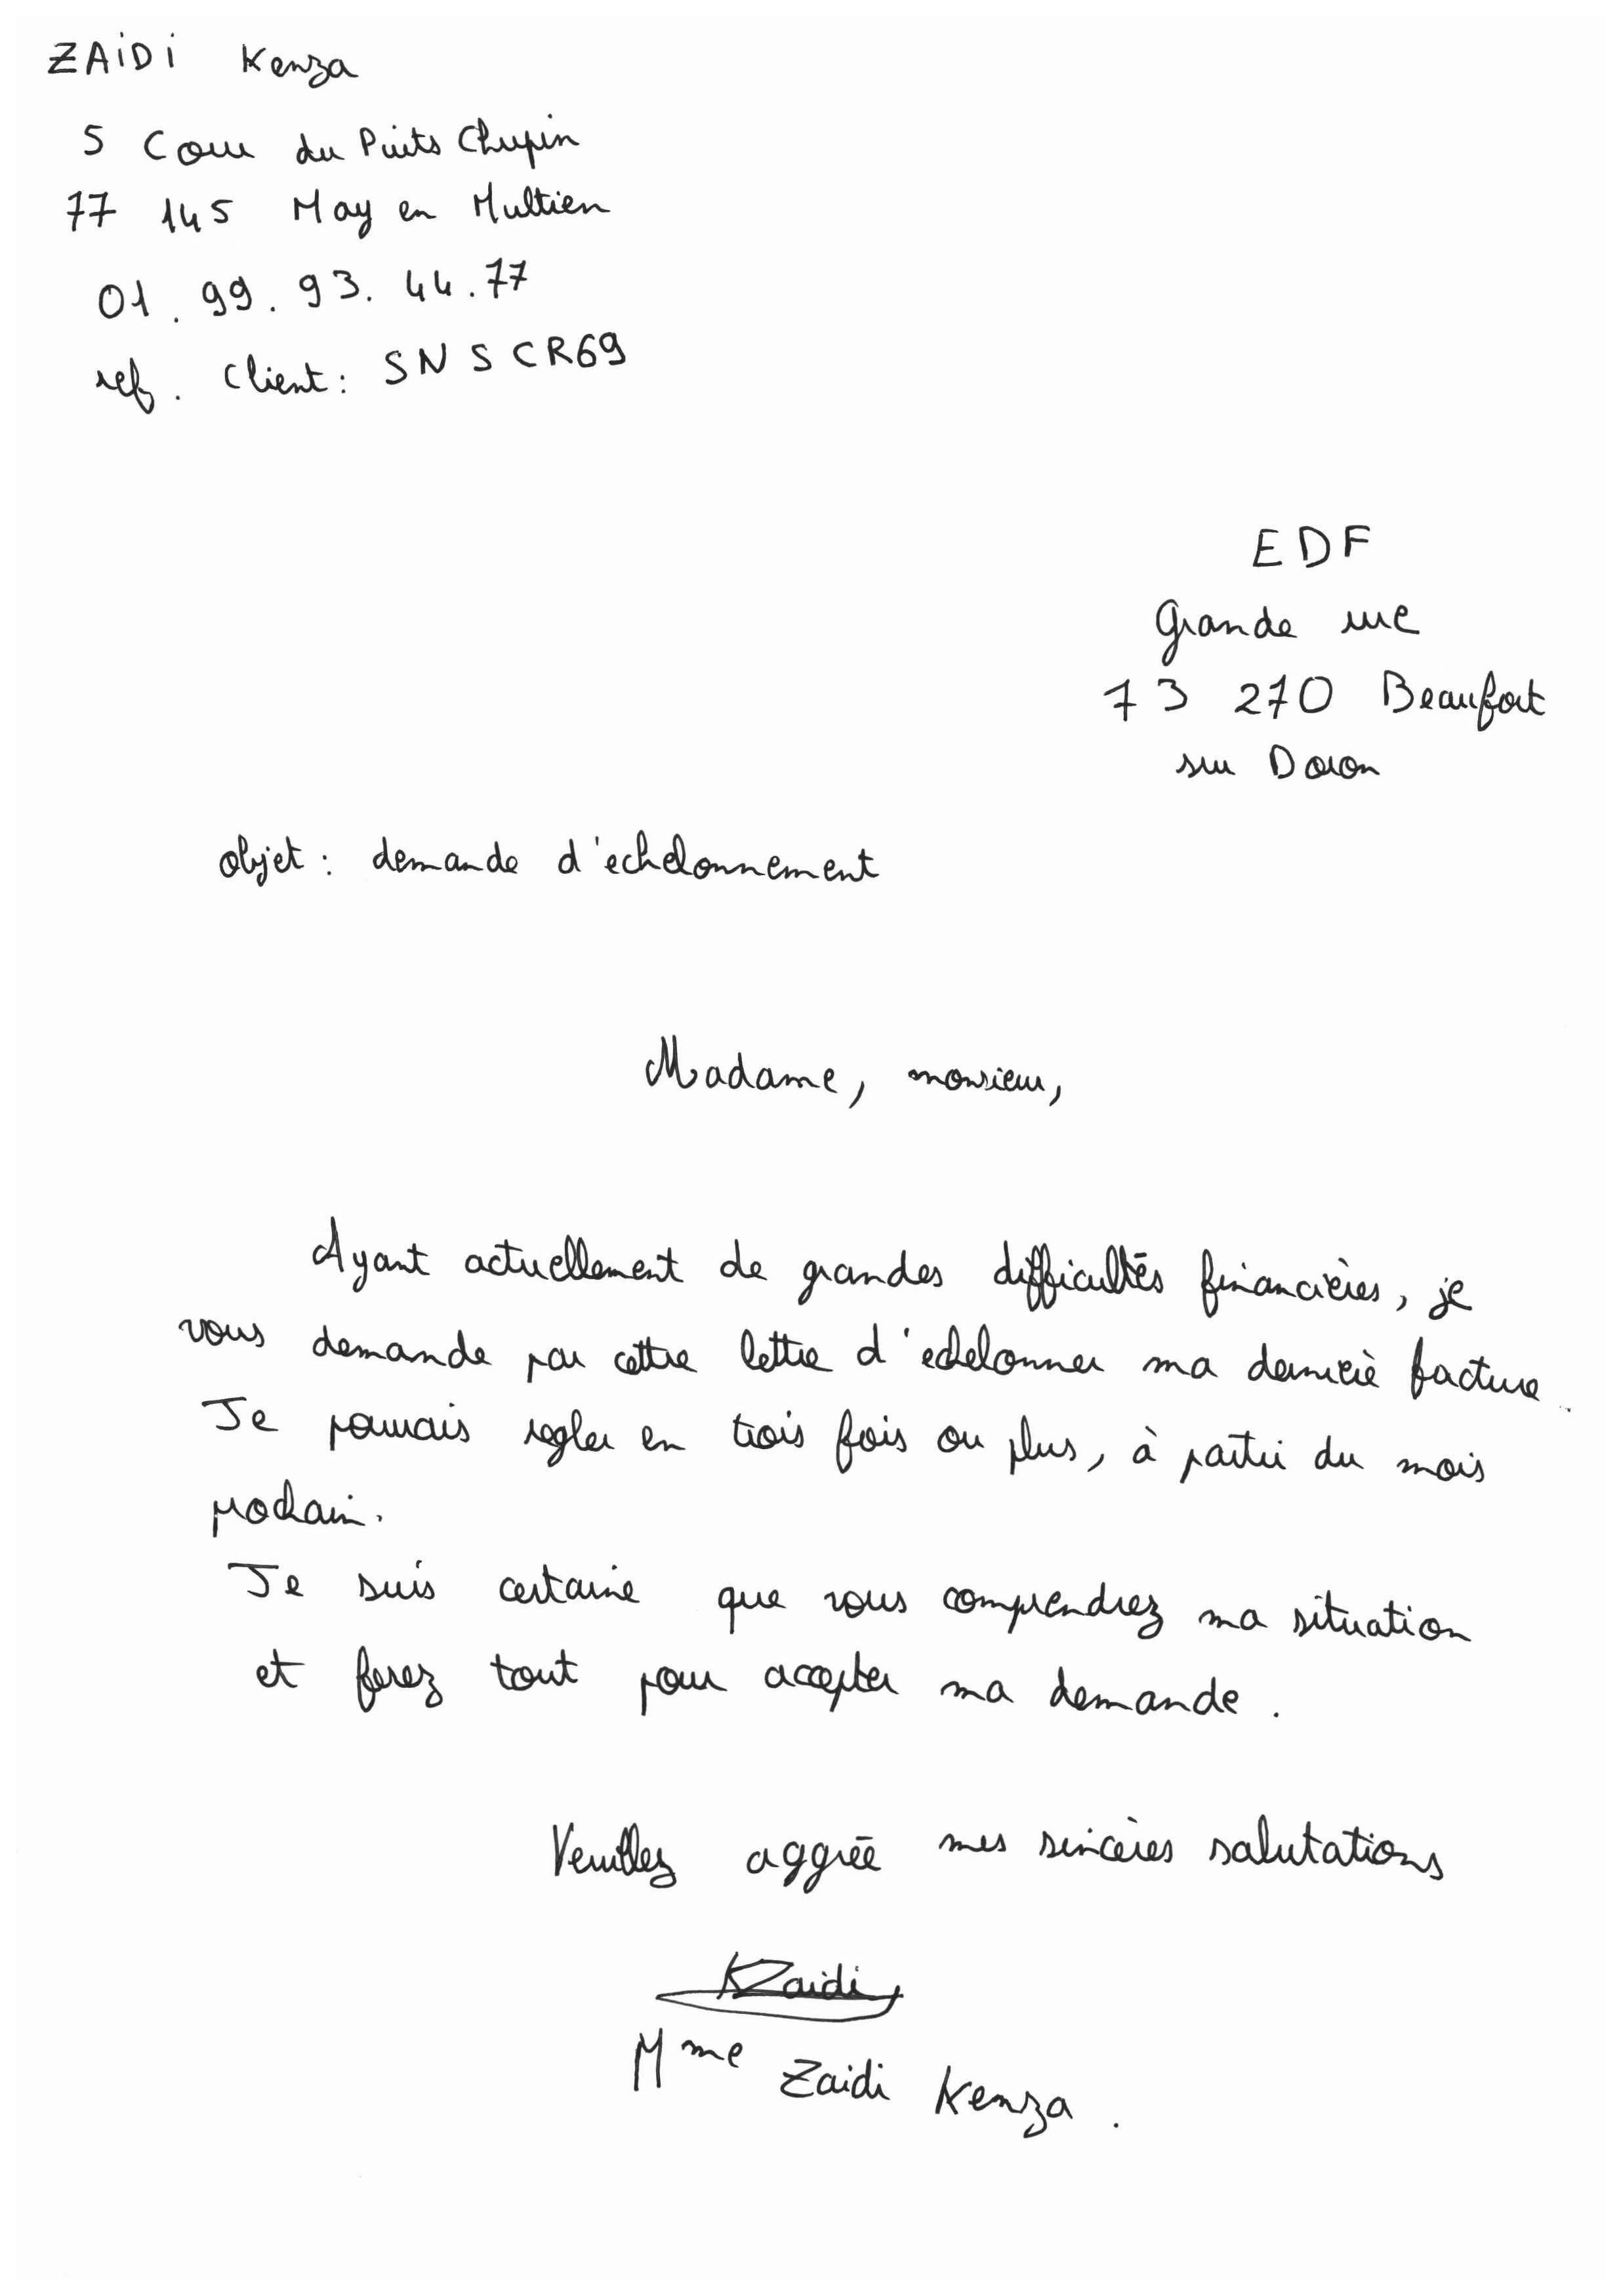 ZAIDI Kenza
5 Cour du Puits Chupin
77 145 May en Multien
01.99.93.44.77
ref. Client : SNSCR69
EDF
Grande rue
73 270 Beaufort
sur Doron
objet : demande d'echelonnement
Madame, monsieur,
Ayant actuellement de grandes difficultés financières, je
vous demande par cettre lettre d'echelonner ma dernière facture.
Je pourrais regler en trois fois ou plus, à partir du mois
prochain.
Je suis certaine que vous comprendrez ma situation
et ferez tout pour accepter ma demande.
Veuillez aggréé mes sincères salutations
KZaidi
Mme Zaidi Kenza.